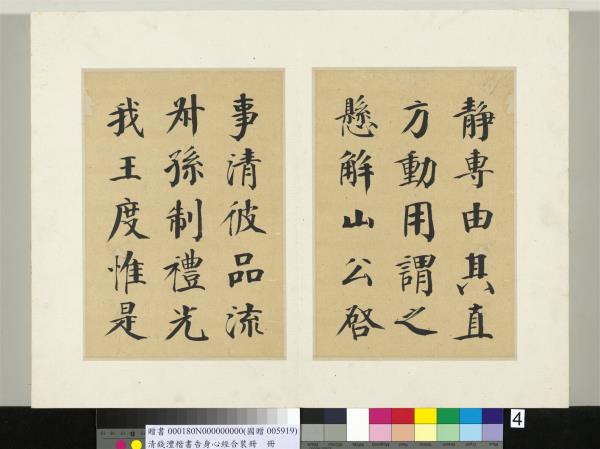 靜專由其直
方動用謂之
懸解山公啓
事清彼品流
叔孫制禮光
我王度惟是
4
贈書 000180N000000000(國贈 005919)
清錢灃楷書告身心經合裝冊 冊